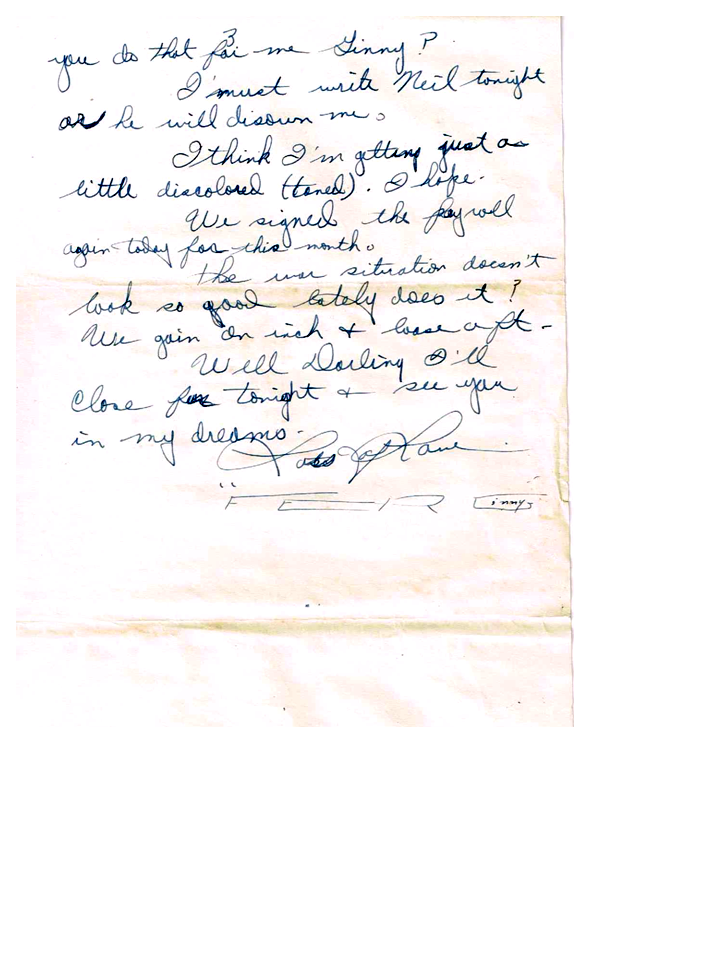 3
you do that for me Ginny?
I must write Neil tonight
or he will disown me.
I think I'm getting just as
little discolored (taned). I hope.
We signed the payroll
again today for this month.
The war situation doesn't
look so good lately does it?
We gain an inch & loose a ft -
Well Darling I'll
close for tonight & see you
in my dreams.
Loads of Love
"FER Ginny